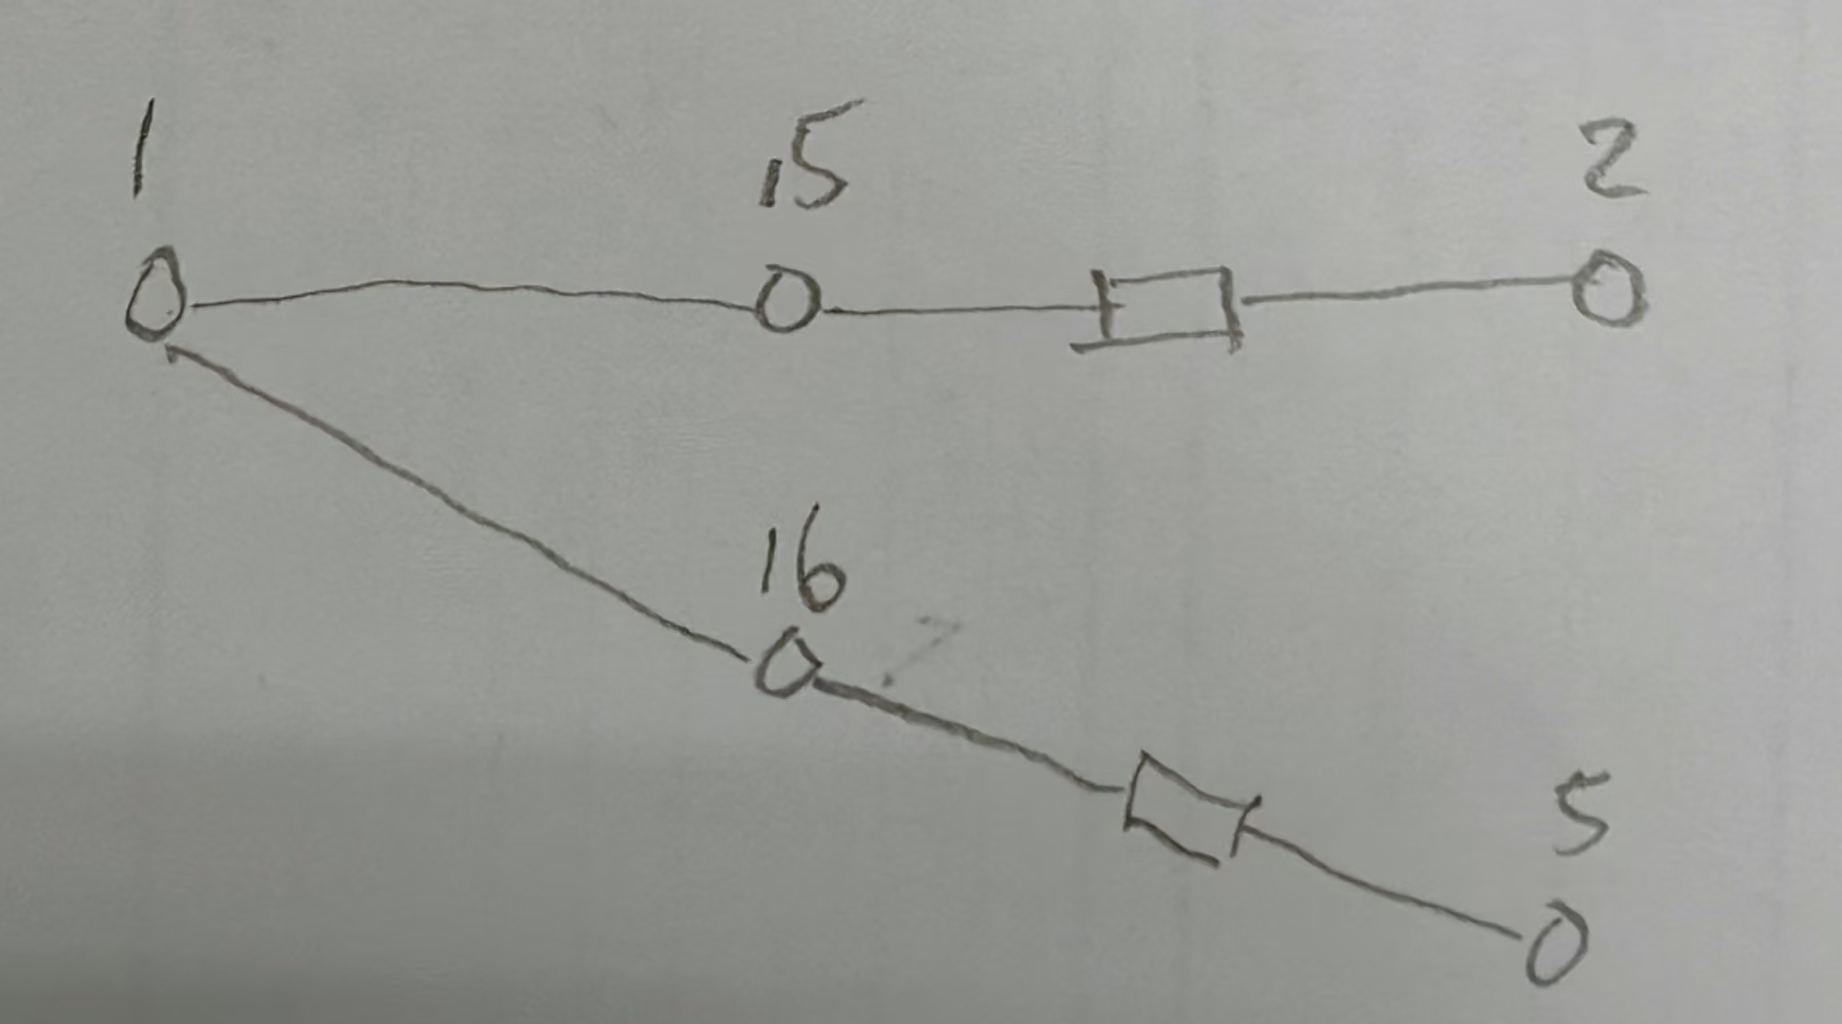 1 15 2
16
5